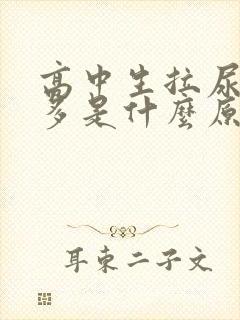 高中生拉尿
多是什麼原
耳東二子文